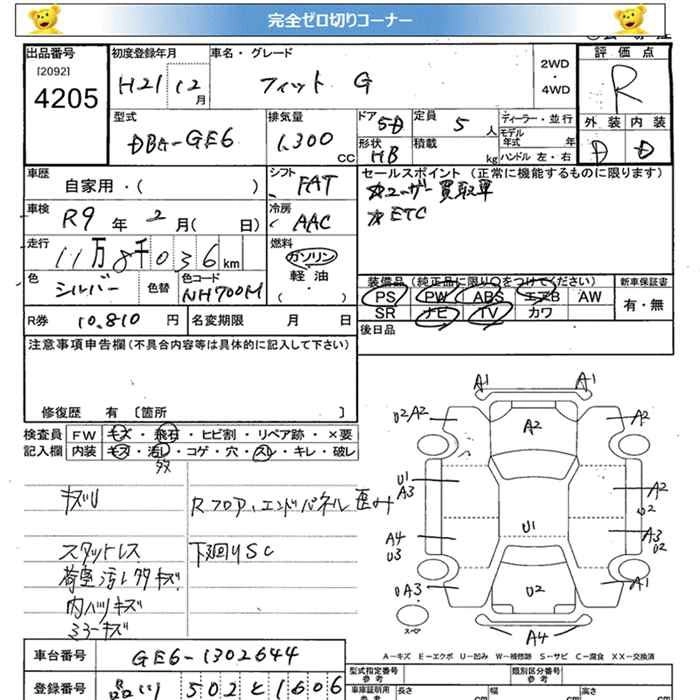 完全ゼロ切りコーナー
出品番号 [2092] 4205
初度登録年月 H21 12月
車名・グレード フィット G
2WD・4WD
評価点 R
型式 DBA-GE6
排気量 1,300 CC
ドア 5D
定員 5人
形状 HB
積載 kg
ディーラー・並行
モデル年式 年
ハンドル 左・右
外装 D 内装 D
車歴 自家用・( )
シフト FAT
セールスポイント(正常に機能するものに限ります)
☆ユーザー買取車
☆ETC
車検 R9年2月( 日)
冷房 AAC
走行 11万8千036km
燃料 ガソリン 軽油 ( ・ )
色 シルバー 色替 色コード NH700M
装備品(純正品に限り〇をつけてください) 新車保証書
PS PW ABS エアB AW 有・無
SR ナビ TV カワ
R券 10,810円 名変期限 月 日
後日品
注意事項申告欄(不具合内容等は具体的に記入して下さい)
修復歴 有〔箇所 〕
検査員記入欄 FW キズ・飛石・ヒビ割・リペア跡・×要
内装 キズ・汚レ・コゲ・穴・スレ・キレ・破レ
タメ
キズU Rフロア、エンドパネル歪み
スタットレス 下廻りSC
荷室汚レタタキズ
内ハツリキズ
ミラーキズ
A1 A1
U2 A2 A2 A2
U1 A3 A2 U2
A4 U3 U1 A3 U2
UA3 U2 A1
スペア A4
A-キズ E-エクボ U-凹み W-補修跡 S-サビ C-腐食 XX-交換済
車台番号 GE6-1302644
登録番号 品川 502 と 1606
型式指定番号 参考 類別区分番号 参考
車庫証明用 参考 長さ cm 幅 cm 高さ cm